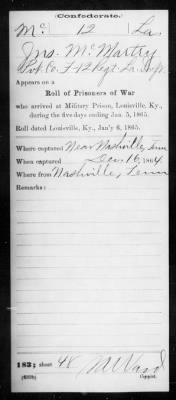 Confederate.
Mc 12 La
Jns. McMartry
Pvt. Co. F-12 Regt. La. Inf.
Appears on a
Roll of Prisoners of War
who arrived at Military Prison, Louisville, Ky.,
during the five days ending Jan. 5, 1865.
Roll dated Louisville, Ky., Jan'y 6, 1865.
Where captured Near Nashville, Tenn
When captured Dec 16, 1864
Where from Nashville, Tenn
Remarks:
183; sheet 48
Copyist.